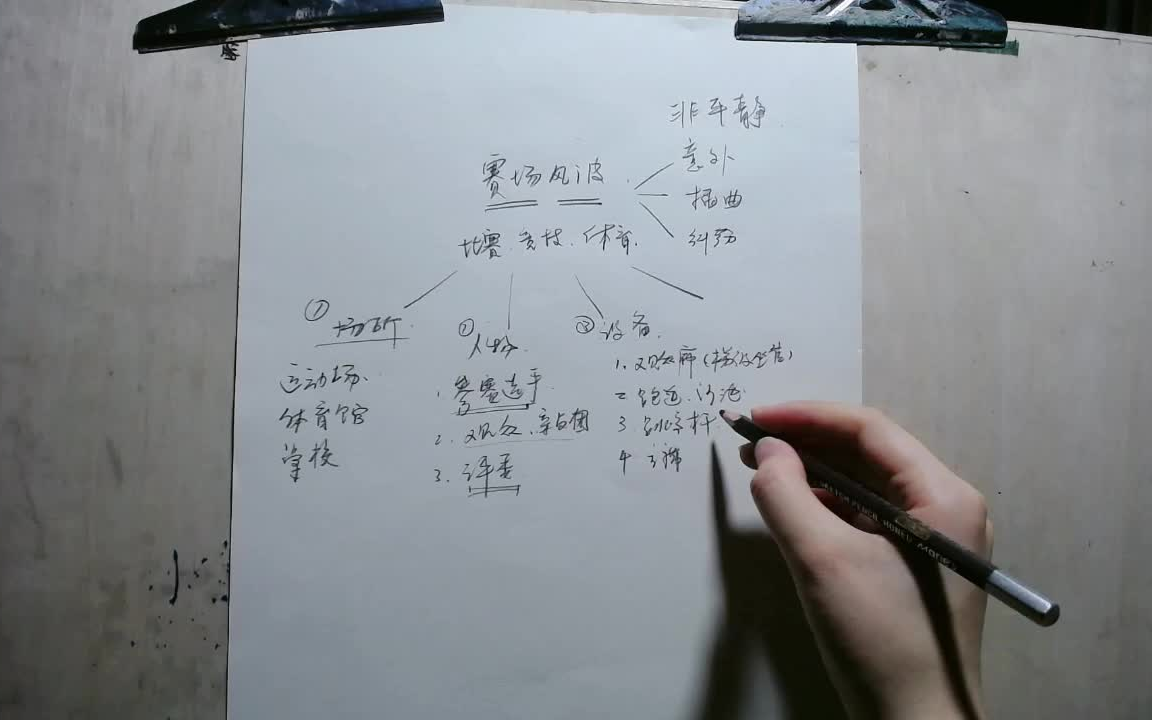 非平静
意外
赛场风波
插曲
比赛、竞技、体育、
纠纷
① 场所
运动场、
体育馆
学校
② 人物
1. 参赛选手
2. 观众、亲友团
3. 评委
③ 设备
1. 观众席(梯级坐台)
2 跑道、沙池
3 跳高杆
4 主席